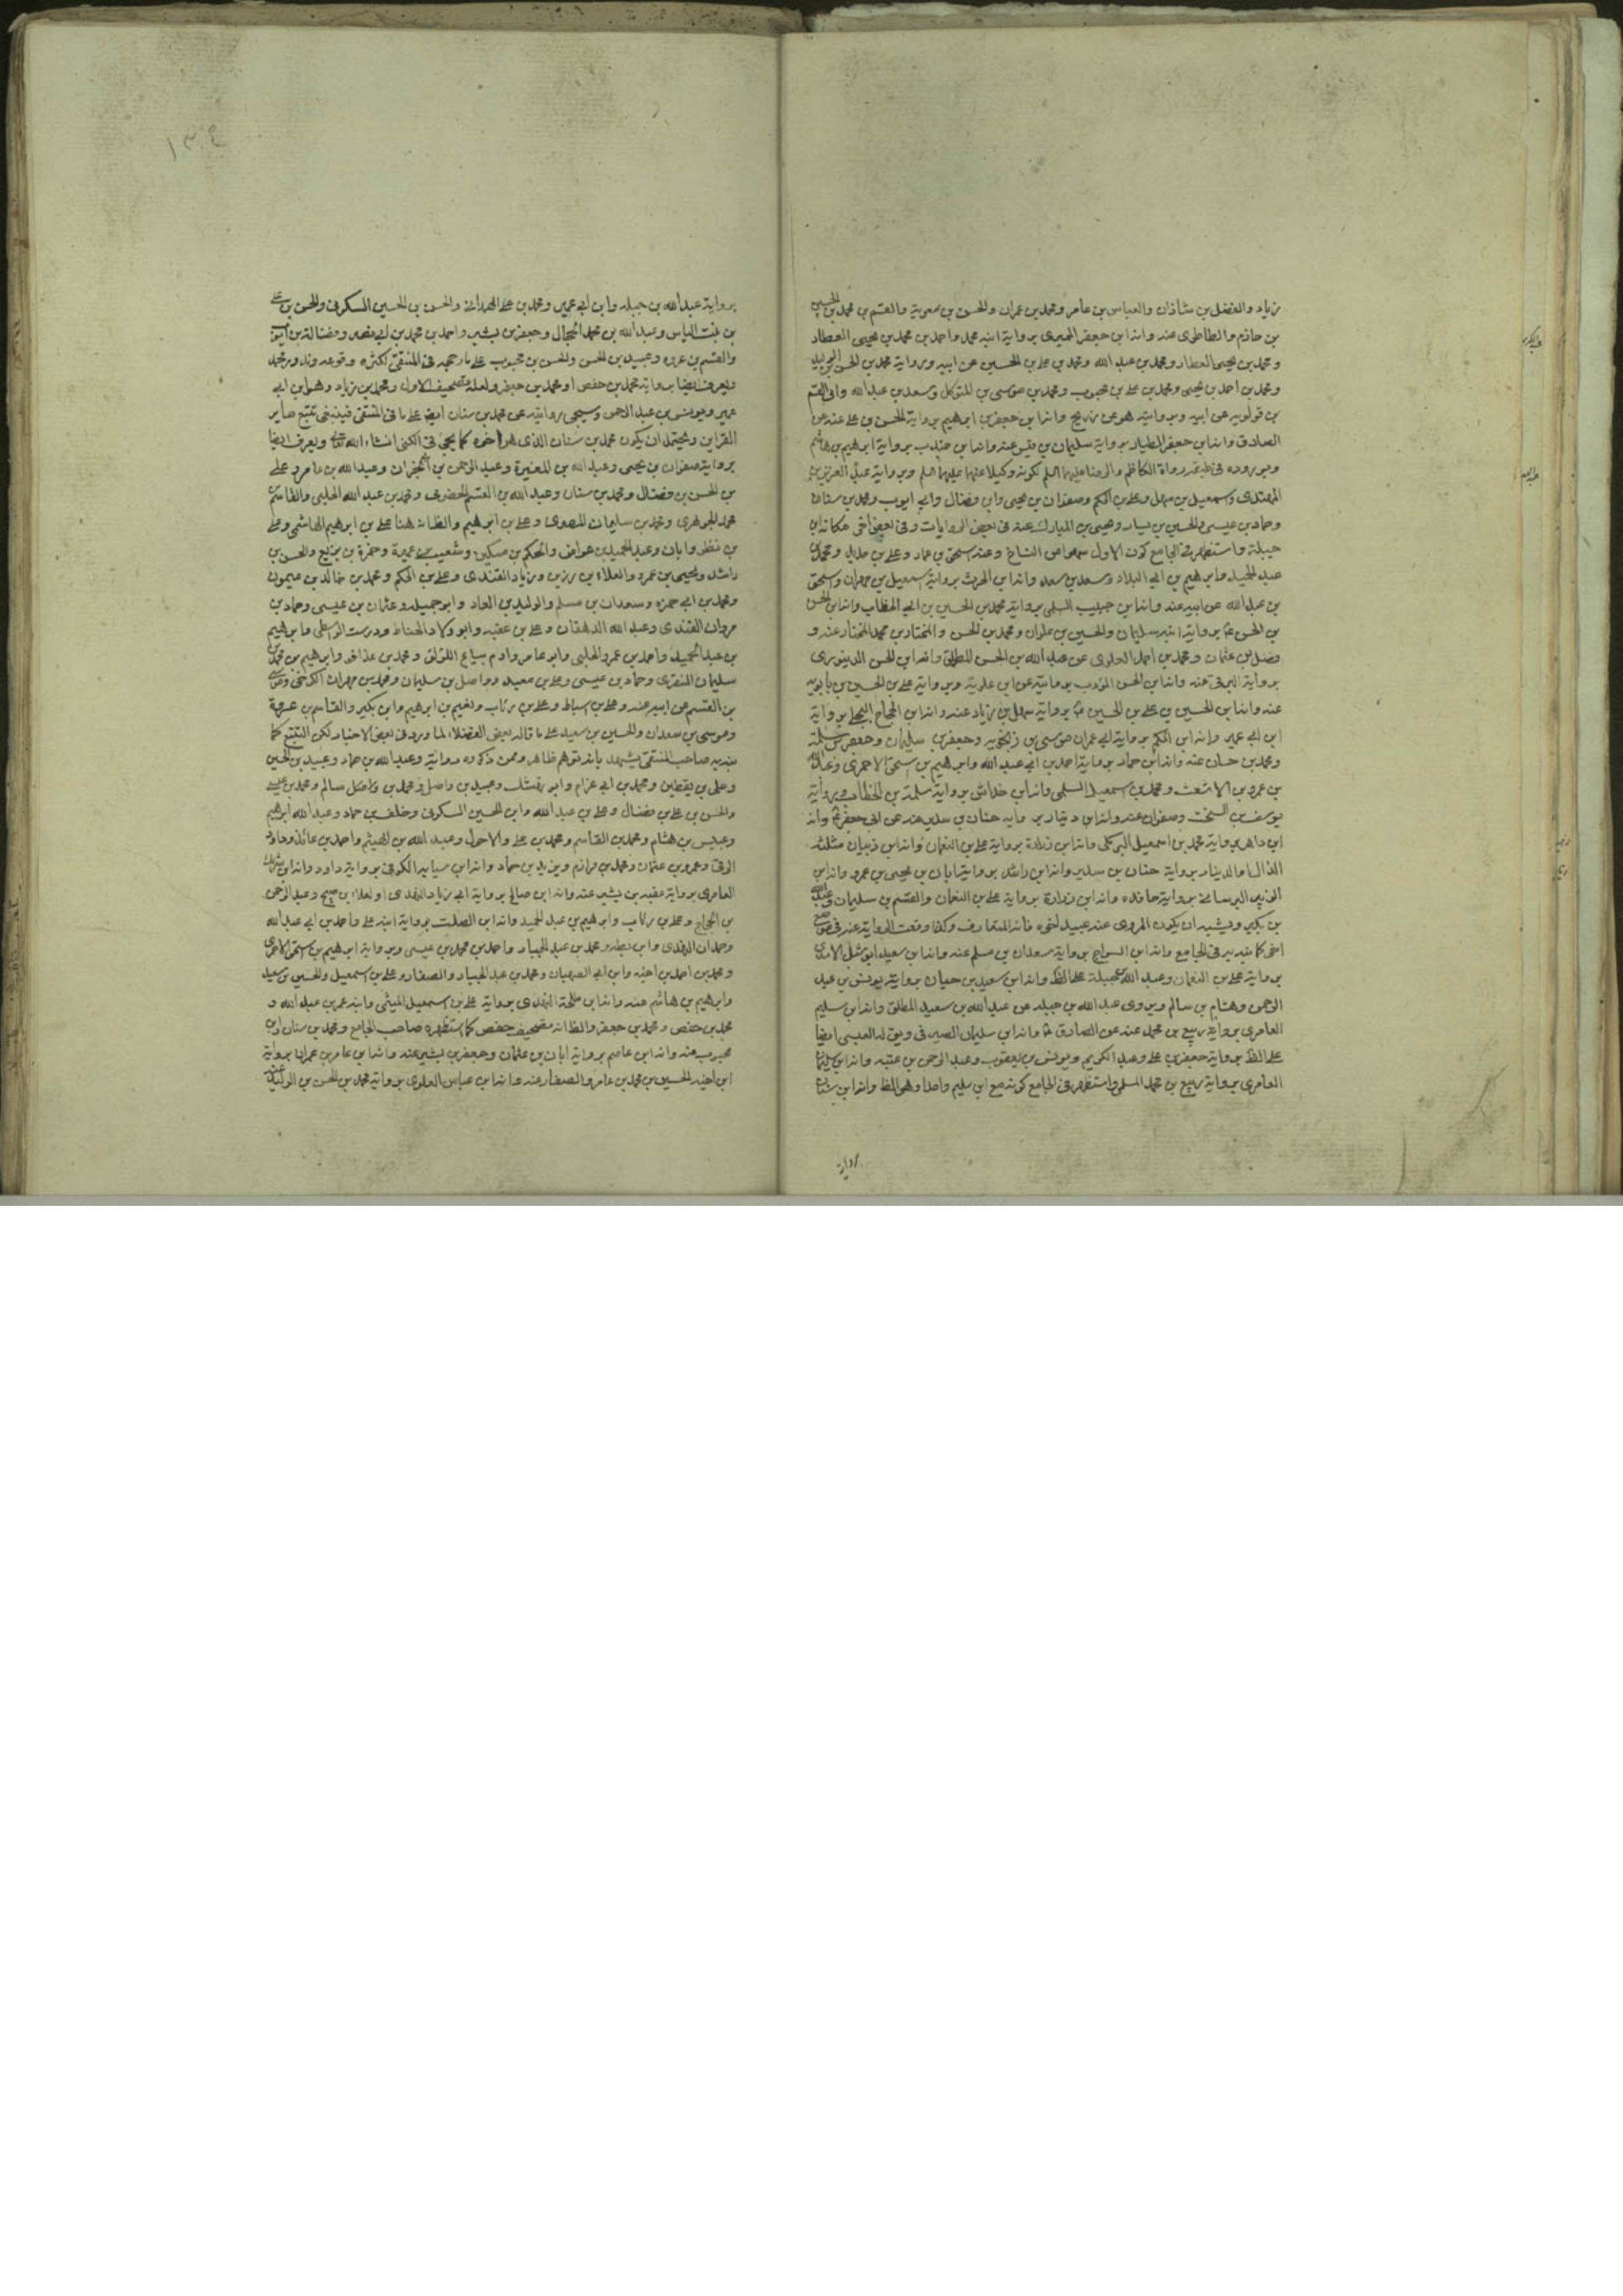 زياد والفضل بن شاذان والعباس بن عامر ومحمد بن عمران والحسن بن معوية والقسم بن محمد بن الحسين
بن حازم والطاطرى عنه وانه ابن جعفر الحميرى برواية ابنه محمد واحمد بن محمد بن يحيى العطار
ومحمد بن يحيى العطار ومحمد بن عبد الله ومحمد بن على بن الحسين عن ابيه وبرواية محمد بن الحسن بن الوليد
ومحمد بن احمد بن يحيى ومحمد بن على بن محبوب ومحمد بن موسى بن المتوكل وسعد بن عبد الله وابى القسم
بن قولويه عن ابيه وبروايته هو عن وانه ابن جعفر بن ابرهيم برواية الحسن بن على عنه عن
الصادق وانه ابن جعفر الطيار برواية سليمان بن عنه وانه ابن جندب برواية ابرهيم بن هاشم
رواة الكاظم والرضا عليهما السلم لكونه وكيلا عنهما عليهما السلم وبرواية عبد العزيز بن
المهتدى واسمعيل بن سهل وعلى بن الحكم وصفوان بن يحيى وابن فضال وابى ايوب ومحمد بن سنان
وحماد بن عيسى والحسين بن يسار ويحيى بن المبارك عنه فى بعض الروايات وفى بعض اخر مكانه ابن
جبلة واستظهر فى الجامع كون الاول سهوا من النساخ وعنه اسحق بن عمار وعلى بن حديد ومحمد بن
عبد الحميد وابرهيم بن ابى البلاد وسعد بن سعد وانه ابن الحرث برواية اسمعيل بن مهران واسحق
بن عبد الله عن ابيه عنه وانه ابن حبيب السلمى برواية محمد بن الحسين بن ابى الخطاب وانه ابن الحسن
بن الحسن برواية ابنه سليمان والحسين بن علوان ومحمد بن الحسن والمختار بن محمد المختار عنه و
فضل بن عثمان ومحمد بن احمد العلوى عن عبد الله بن الحسن المطلق وانه ابن الحسن الدينورى
برواية البرقى عنه وانه ابن الحسن المؤدب بروايته عن ابن علوية وبرواية على بن الحسين بن بابويه
عنه وانه ابن الحسين بن على بن الحسين برواية سهل بن زياد عنه وانه ابن الحجاج البجلى برواية
ابن ابى عمير وانه ابن الحكم برواية ابى عمران موسى بن زنجويه وجعفر بن سليمان وجعفر بن سلمة
ومحمد بن حسان عنه وانه ابن حماد برواية احمد بن ابى عبد الله وابرهيم بن اسحق الاحمرى وعبد الله
بن عمرو بن الاشعث ومحمد بن اسمعيل السلمى وانه ابن خداش برواية سلمة بن الخطاب وبرواية
يوسف بن السخت وصفوان عنه وانه ابن دينار برواية حنان بن سدير عنه عن ابى جعفر وانه
ابن داهر برواية محمد بن اسمعيل البرمكى وانه ابن زرارة برواية على بن النعمان وانه ابن ذبيان مثلثة
الذال او الدينار برواية حنان بن سدير وانه ابن راشد برواية ابان بن يحيى بن عمرو وانه ابن
الزبير برواية وانه ابن زرارة برواية على بن النعمان والقسم بن سليمان وعبد الله
بن بكير ويشبه ان يكون المروى عنه عبيد اخوه فانه المتعارف وكذا وقعت الرواية عنه فى موضع
اخر كما نبه به فى الجامع وانه ابن السراج برواية سعدان بن مسلم عنه وانه ابن سعيد ابو شبل الاسدى
برواية على بن النعمان وعبد الله بن جبلة على الظ وانه ابن سعيد بن حيان برواية يونس بن عبد
الرحمن وهشام بن سالم ويروى عبد الله بن جبلة عن عبد الله بن سعيد المطلق وانه ابن سليم
العامرى برواية ربيع بن محمد عنه عن الصادق وانه ابن سليمان الصيرفى ويق له العبسى ايضا
على الظ برواية جعفر بن على وعبد الكريم ويونس بن يعقوب وعبد الرحمن بن عتبه وانه ابن سليمان
العامرى برواية ربيع بن محمد المسلى واستظهر فى الجامع كونه مع ابن سليم واحدا وهو الظ وانه ابن سنان
برواية
١٣٤
برواية عبد الله بن جبله وابن ابى عمير ومحمد بن على الهمدانى والحسن بن الحسين السكونى والحسن بن على
بن بنت الياس وعبد الله بن محمد الحجال وجعفر بن بشير واحمد بن محمد بن ابى نصر وفضالة بن ايوب
والقسم بن عروه وعبيد بن الحسن والحسن بن محبوب على ما رجحه فى المنتقى لكثرة وقوعه وندور محمد
ويعرف ايضا برواية محمد بن حفص او محمد بن جعفر ولعله تصحيف الاول ومحمد بن زياد وهو ابن ابى
عمير ويونس بن عبد الرحمن وسيجى روايته عن محمد بن سنان ايض على ما فى المنتقى فينبغى تتبع ساير
القراين ويحتمل ان يكون محمد بن سنان الذى هو اخوه كما يجئ فى الكنى انشاء الله تعالى ويعرف ايضا
برواية صفوان بن يحيى وعبد الله بن المغيرة وعبد الرحمن بن ابى نجران وعبد الله بن وعلى
بن الحسن بن فضال ومحمد بن سنان وعبد الله بن القسم الحضرمى ومحمد بن عبد الله الحلبى والقاسم بن
محمد الجوهرى ومحمد بن سليمان المصرى وعلى بن ابرهيم والظ انه هنا على بن ابرهيم الهاشمى وعلى
بن وابان وعبد الحميد بن عواض والحكم بن مسكين وشعيب وحمزة بن بزيع والحسن بن
راشد ويحيى بن عمرو والعلاء بن رزين وزياد القندى وعلى بن الحكم ومحمد بن خالد بن ميمون
ومحمد بن ابى حمزه وسعدان بن مسلم والوليد بن العلاء وابو جميلة وعثمان بن عيسى وحماد بن
مروان القندى وعبد الله الدهقان وعلى بن عقبه وابو ولاد الحناط ودرست الواسطى وابرهيم
بن عبد الحميد واحمد بن عمرو الحلبى وابو عامر وادم بياع اللؤلؤ ومحمد بن عذافر وابرهيم بن محمد بن
سليمان المنقرى وحماد بن عيسى وعلى بن معبد وواصل بن سليمان ومحمد بن مهران الكرخى وموسى
بن القسم عن ابيه عنه وعلى بن اسباط وعلى بن رئاب ونعيم بن ابرهيم وابن بكير والقاسم بن عروة
وموسى بن سعدان والحسين بن سعيد على ما قاله بعض الفضلاء لما ورد فى بعض الاخبار لكن التتبع كما
نبه به صاحب المنتقى يشهد بانه توهم ظاهر وممن ذكروه روايته وعبد الله بن حماد وعبيد بن الحسين
وعلى بن يقطين ومحمد بن ابى وابو وعبيد بن واصل ومحمد بن سالم ومحمد بن عيسى
والحسن بن على بن فضال وعلى بن عبد الله وابن الحسين السكونى وخلف بن حماد وعبد الله ابرهيم
وعبيس بن هشام ومحمد بن القاسم ومحمد بن على والاحول وعبيد الله بن الهيثم واحمد بن عائذ وداود
الرقى وعمرو بن عثمان ومحمد بن مرازم ويزيد بن حماد وانه ابن سيابه الكوفى برواية داود وانه ابن شريك
العامرى برواية عقبه بن بشير عنه وانه ابن صالح برواية ابى زياد النهدى او لعلاء بن صبيح وعبد الرحمن
بن الحجاج وعلى بن رئاب وابرهيم بن عبد الحميد وانه ابن الصلت برواية ابنه على واحمد بن ابى عبد الله
وحمدان النهدى وابن بطه ومحمد بن عبد الجبار واحمد بن محمد بن عيسى وبرواية ابرهيم بن اسحق الاحمرى
ومحمد بن احمد بن اخيه وابن ابى الصهبان ومحمد بن عبد الجبار والصفار وعلى بن اسمعيل والحسين بن سعيد
وابرهيم بن هاشم عنه وانه ابن طلحة النهدى برواية على بن اسمعيل الميثمى وابنه عمر بن عبد الله و
محمد بن حفص ومحمد بن جعفر والظ انه مصحف حفص كما استظهره صاحب الجامع ومحمد بن سنان وابن
محبوب عنه وانه ابن عاصم برواية ابان بن عثمان وجعفر بن بشير عنه وانه ابن عامر بن عمران برواية
ابن اخيه الحسين بن محمد بن عامر والصفار عنه وانه ابن عباس العلوى برواية محمد بن الحسن بن الوليد عنه